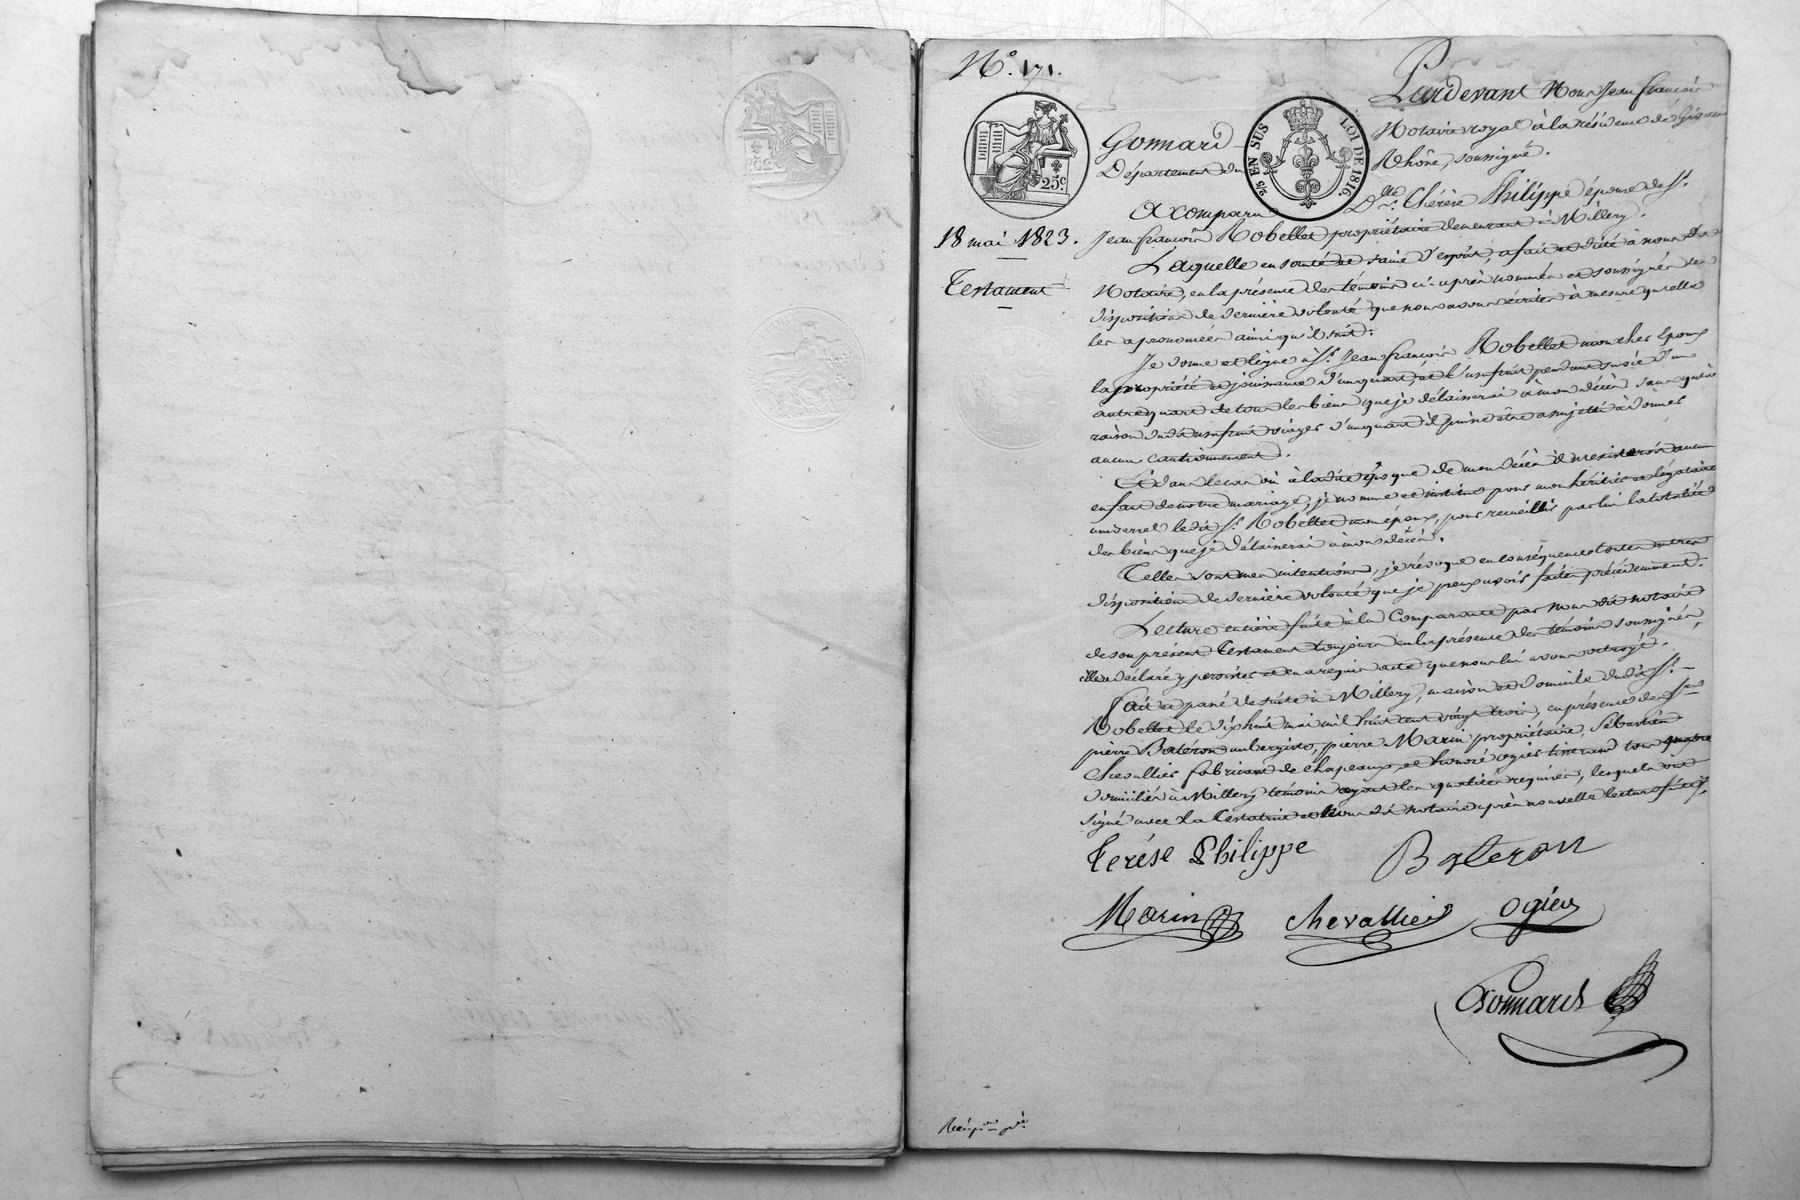 N.° 171.
Pardevant Nous Jean françois
Gonnard Notaire royal à la résidence de Givors
Département du Rhône, soussigné.
25 c.
2/5 EN SUS
LOI DE 1816.
18 mai 1823.
Testament
A comparu D.e Thérèse Philippe épouse de S.r
Jean françois Robellet propriétaire demeurant à Millery.
Laquelle en santé et saine d'esprit, a fait et dicté à nous dit
Notaire, en la présence des témoins ci-après nommés et soussignés ses
dispositions de dernière volonté que nous avons écrites à mesure qu'elle
les a pronomées ainsi qu'il suit.
Je donne et lègue à S.r Jean françois Robellet mon cher Epoux
la propriété et jouissance d'un quart, et l'usufruit pendant sa vie d'un
autre quart de tous les biens que je délaisserai à mon décès sans qu'à
raison dudit usufruit viager d'un quart il puisse être assujetti à donner
aucun cautionnement.
Et dans le cas où à ladite époque de mon décès il n'existerait aucun
enfant de notre mariage, je nomme et institue pour mon héritier et légataire
universel ledit S.r Robellet mon époux, pour recueillir par lui la totalité
des biens que je délaisserai à mon décès.
Telles sont mes intentions, je révoque en conséquence toutes autres
dispositions de dernière volonté que je peux avoir faites précédemment.
Lecture entière faite à la Comparante par nous dit notaire
de son présent testament toujours en la présence des témoins soussignés,
elle a déclaré y persister et en a requis acte que nous lui avons octroyé.
Fait et passé de suite à Millery, maison et domicile dudit S.r
Robellet le dixhuit mai mil huit cent vingt trois, en présence de S.rs
pierre Boteron aubergiste, pierre Marin propriétaire, Sébastien
Chevallier fabricant de chapeaux, et honoré ogier tisserand tous quatre
domiciliés à Millery témoins ayant les qualités requises, lesquels ont
signé avec la testatrice et Nous dit notaire après nouvelle lecture faite.
Terése Philippe Boteron
Marin chevallier ogier
Gonnard